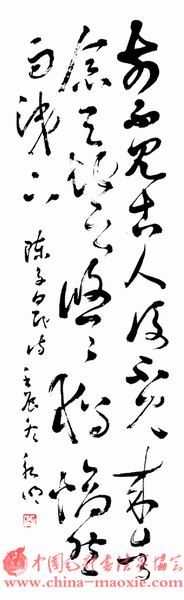 前不见古人后不见来者
念天地之悠〻独怆然
而涕下
陈子昂诗 壬辰冬
www.china-maoxie.com